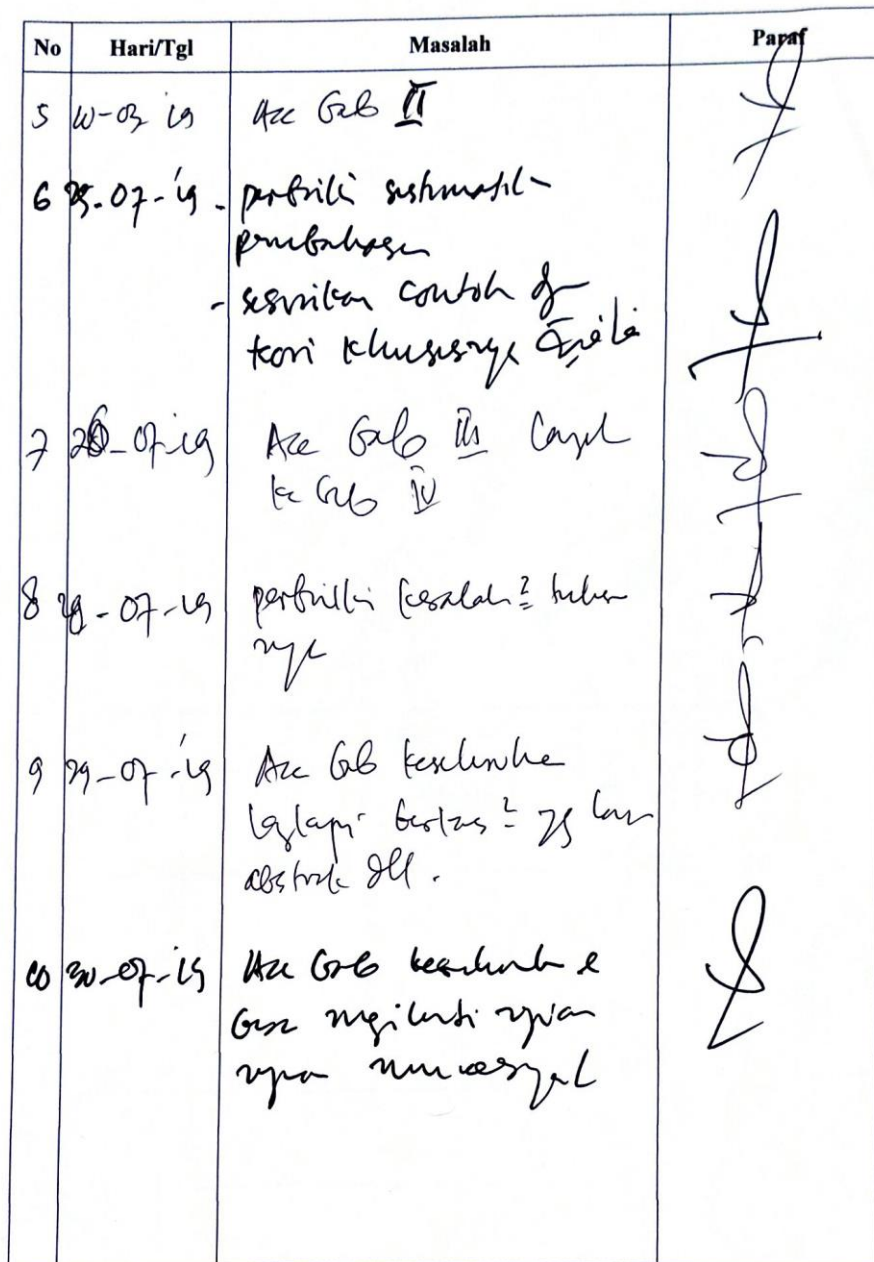 No Hari/Tgl Masalah Paraf
5 10-03-19 Acc Bab II
6 25-07-19 - perbaiki sistematik
pembahasan
- sesuaikan contoh dg
teori khususnya
7 26-07-19 Acc Bab III lanjut
ke Bab IV
8 29-07-19 perbaiki kesalahan2 tulisan
nya
9 29-07-19 Acc Bab keseluruhan
lengkapi berkas2 yg lain
abstrak dll.
10 30-07-19 Acc Bab keseluruhan &
bisa mengikuti ujian
ujian munaqasyah